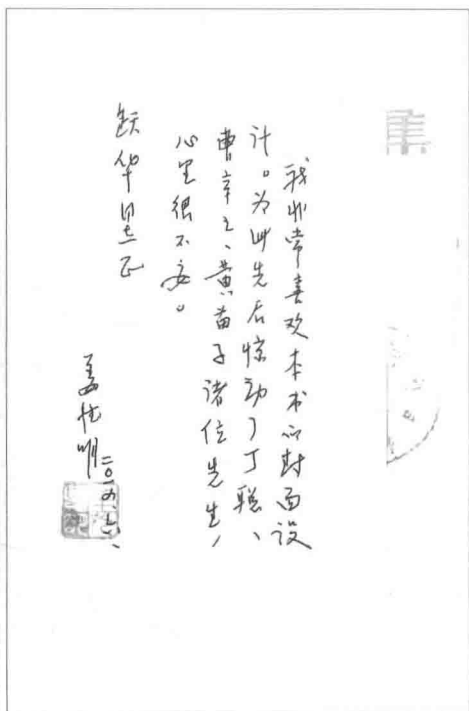 我非常喜欢本书的封面设
计。为此先后惊动了丁聪、
曹辛之、黄苗子诸位先生，
心里很不安。
铁华同志正
姜德明
二〇一四、六、